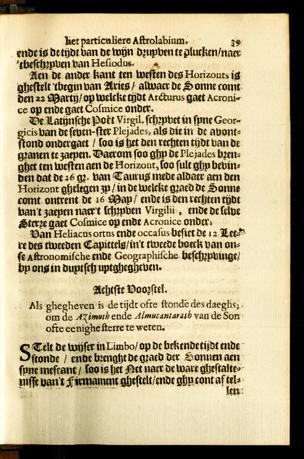 het particuliere Astrolabium. 39
ende is de tijdt van de wijn druyven te plucken/naer
'tbeschrijven van Hesiodus.
Aen de ander kant ten westen des Horizonts is
ghestelt 'tbegin van Aries/ alwaer de Sonne comt
den 22 Martij/ op welke tijdt Arcturus gaet Acroni-
ce op ende gaet Cosmice onder.
De Latijnsche Poët Virgil. schrijvet in syne Geor-
gicis van de seven-ster Plejades, als die in de avont-
stondt ondergaet / soo is het den rechten tijdt van de
granen te zaeyen. Daerom soo ghy de Plejades bren-
ghet ten westen aen de Horizont, soo sult ghy bevin-
den dat de 26 gr. van Taurus mede aldaer aen den
Horizont ghelegen zy / in de welcke graedt de Sonne
comt ontrent de 16 May / ende is den rechten tijdt
van't zaeyen naer't schrijven Virgilii , ende de selve
Sterre gaet Cosmice op ende Acronice onder.
Van Heliacus ortns ende occasus besiet de 12 Lee-
re des tweeden Capittels/in't tweede boeck van on-
se Astronomische ende Geographische beschrijvinge/
by ons in duytsch uytghegheven.
Achtste Voorstel.
Als ghegheven is de tijdt ofte stonde des daeghs;
om de Azimuth ende Almucantarath van de Son
ofte eenighe sterre te weten.
STelt de wijser in Limbo/op de bekende tijdt ende
stonde / ende brenght de graed der Sonnen aen
syne mescant / soo is het Net naer de ware ghestalte-
nisse van't Firmament ghestelt/ende ghy cont af tel-
len